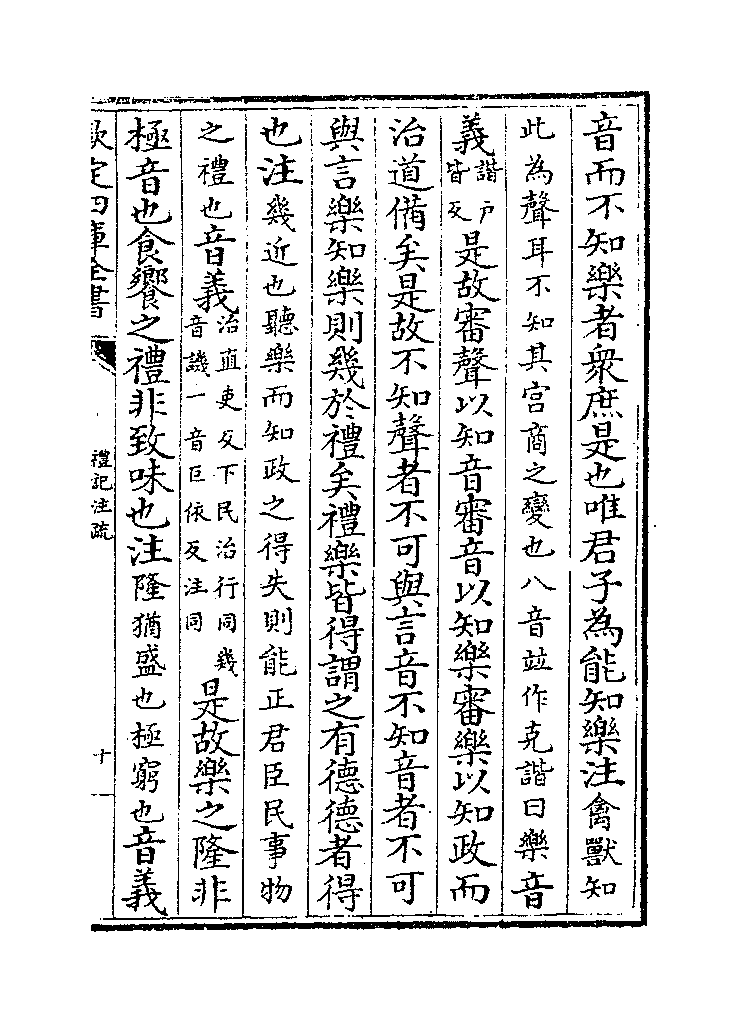 音而不知樂者衆庶是也唯君子為能知樂注禽獸知
此為聲耳不知其宫商之變也八音並作克諧曰樂音
義諧户皆反是故審聲以知音審音以知樂審樂以知政而
治道備矣是故不知聲者不可與言音不知音者不可
與言樂知樂則幾於禮矣禮樂皆得謂之有德德者得
也注幾近也聽樂而知政之得失則能正君臣民事物
之禮也音義治直吏反下民治行同幾音譏一音巨依反注同是故樂之隆非
極音也食饗之禮非致味也注隆猶盛也極窮也音義
欽定四庫全書
禮記注疏
十一